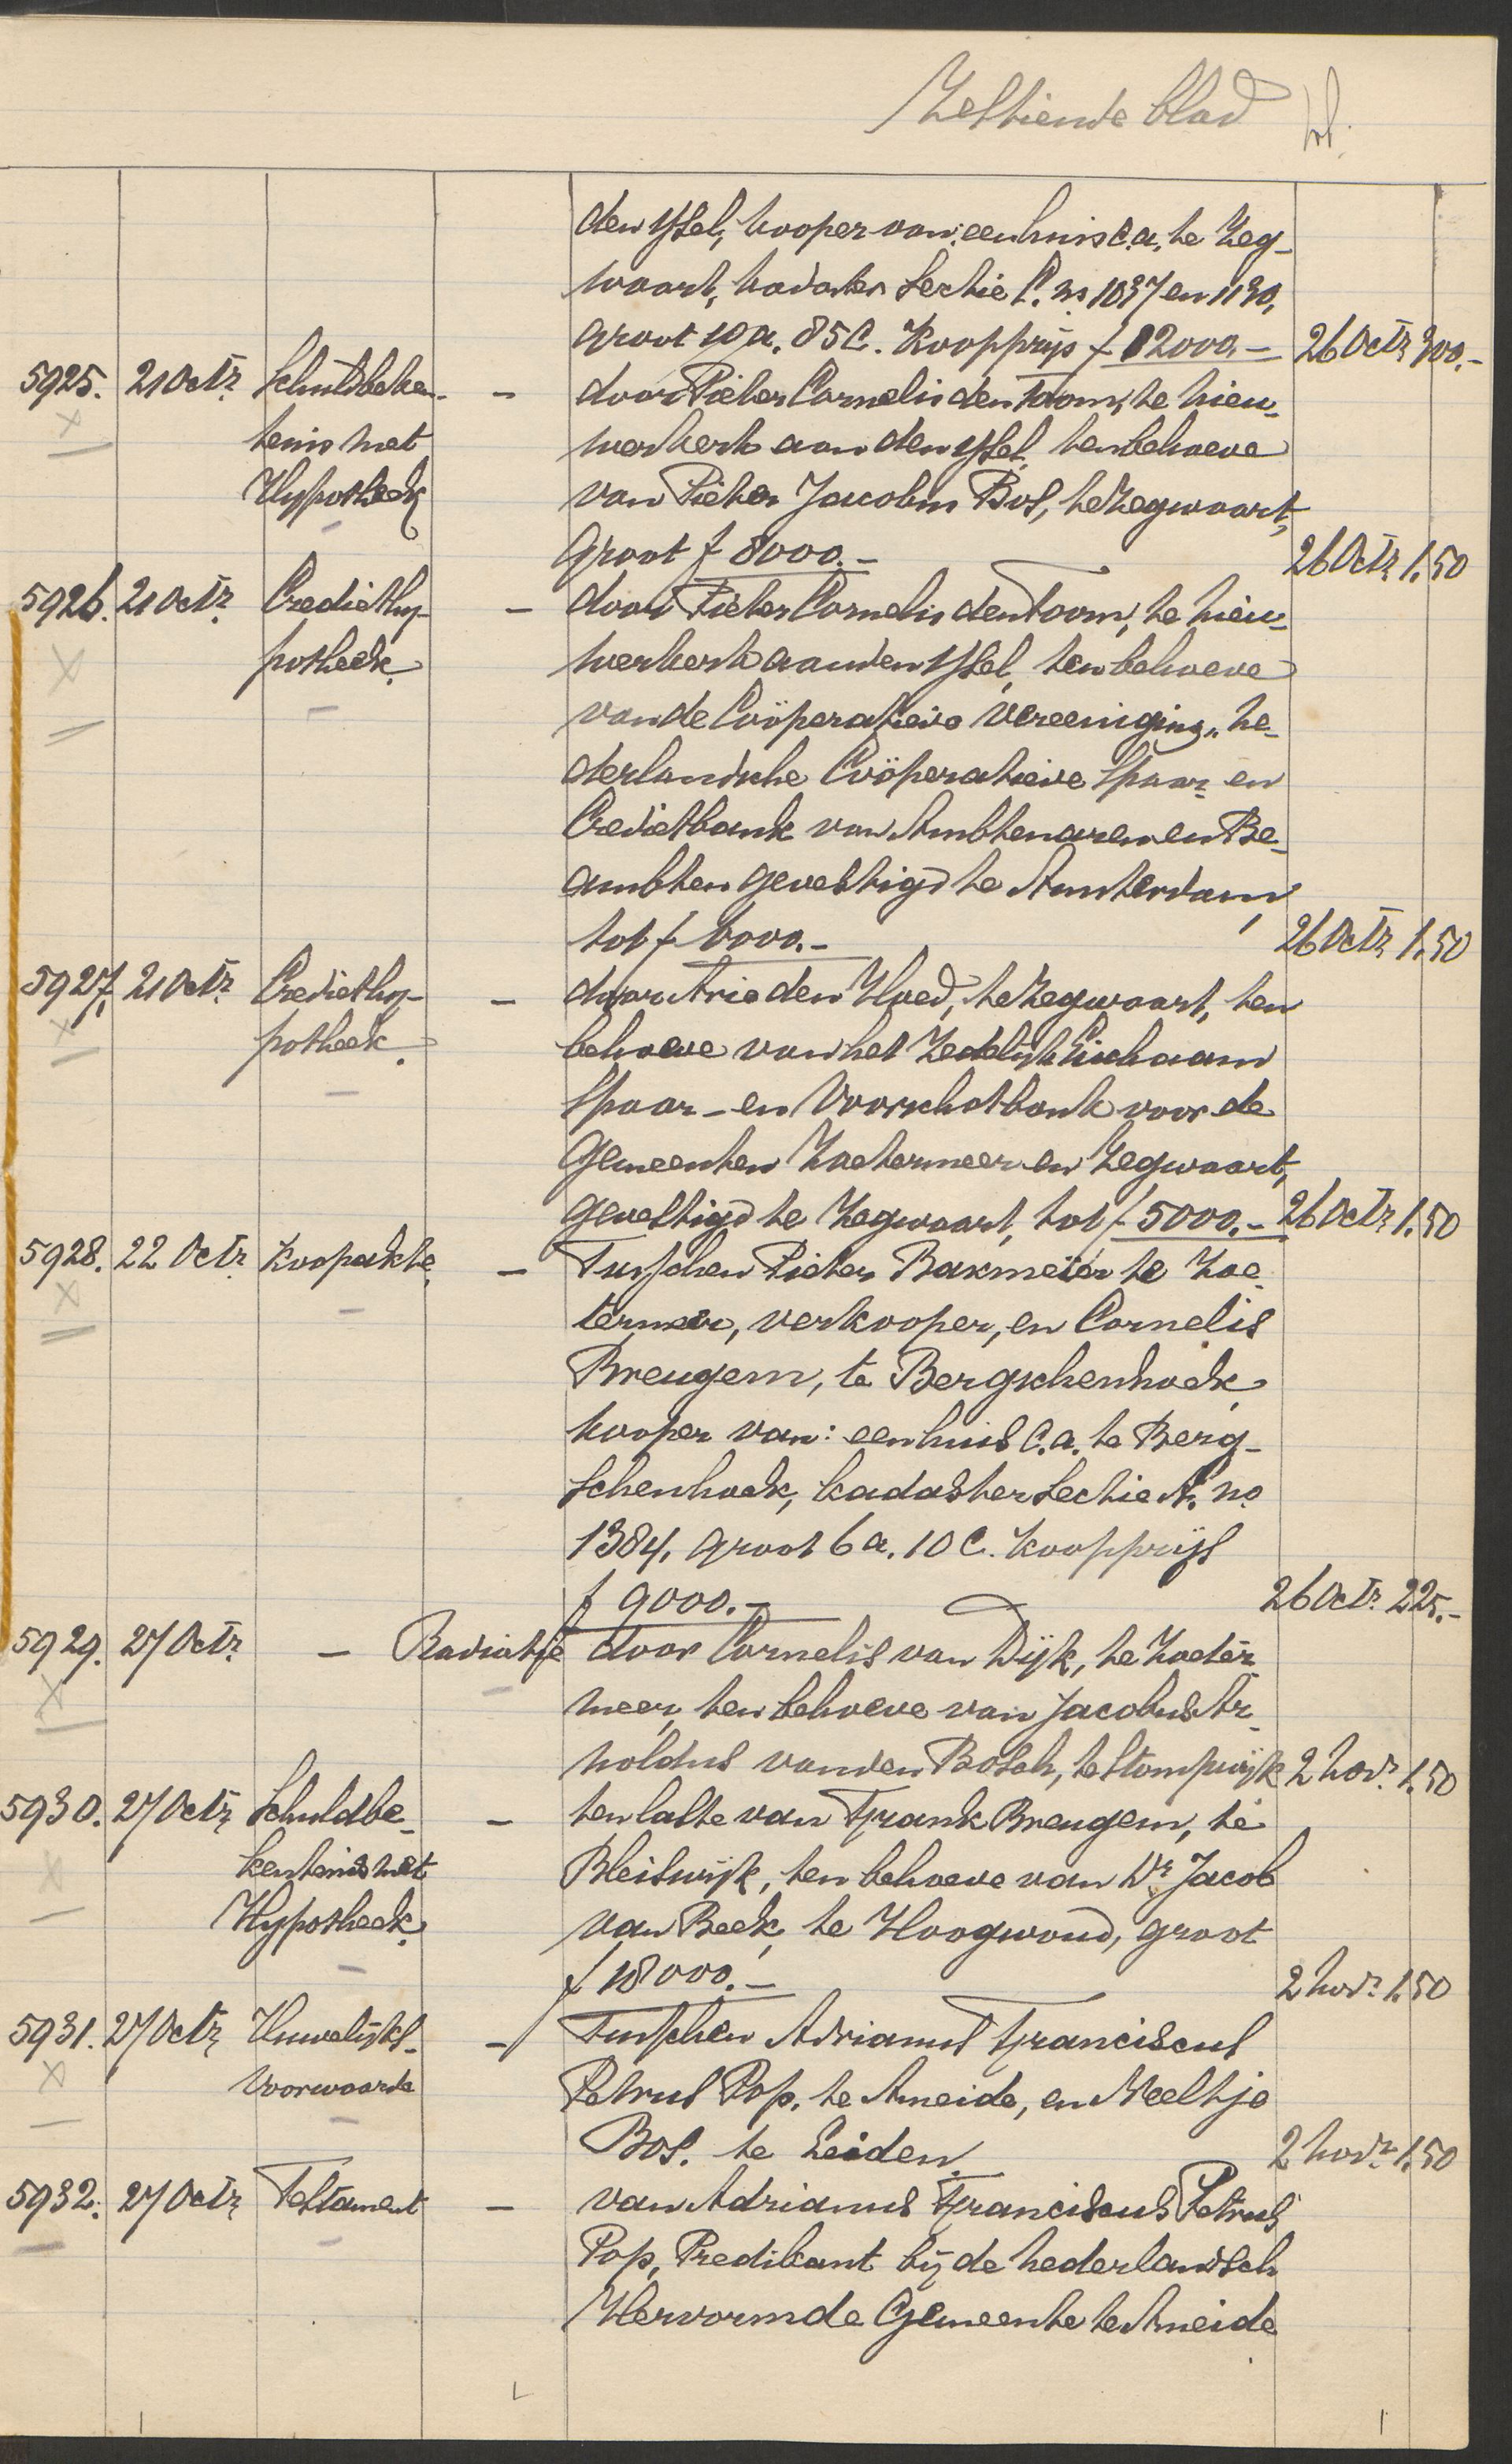 Zestiende blad
den IJsel, kooper van: een huis c.a. te Zeg-
waart, kadaster Sectie C. no. 1037 en 1130,
groot 10 a. 85 c. Koopprijs f 12000.- 26 Octr 300.-
5925. 21 Octr. Schuldbeken- - door Pieter Cornelis den Toom, te Nieu-
tenis met werkerk aan den IJsel, ten behoeve
Hypotheek van Pieter Jacobus Bos, te Zegwaart,
groot f 8000.- 26 Octr 1.50
5926. 21 Octr. Crediethy- - door Pieter Cornelis den Toom, te Nieu-
potheek. werkerk aan den IJsel, ten behoeve
van de Coöperatieve Vereeniging „Ne-
derlandsche Coöperatieve Spaar- en
Credietbank van Ambtenaren en Be-
ambten gevestigd te Amsterdam,
tot f 6000.- 26 Octr 1.50
5927. 21 Octr. Crediethy- - door Arie den Hoed, te Zegwaart, ten
potheek. behoeve van het Zedelijk Lichaam
Spaar- en Voorschotbank voor de
Gemeenten Zoetermeer en Zegwaart,
gevestigd te Zegwaart, tot f 5000.- 26 Octr 1.50
5928. 22 Octr. Koopakte. - Tusschen Pieter Bakmeier te Zoe-
termeer, verkooper, en Cornelis
Breugem, te Bergschenhoek,
kooper van: een huis c.a. te Berg-
schenhoek, kadaster Sectie A. no.
1384, groot 6 a. 10 c. koopprijs
f 9000.- 26 Octr. 225.-
5929. 27 Octr. - Radiatie door Cornelis van Dijk, te Zoeter-
meer, ten behoeve van Jacobus Ar-
noldus van den Bosch, te Stompwijk 2 Novr. 1.50
5930. 27 Octr Schuldbe- - ten laste van Frank Breugem, te
kentenis met Bleiswijk, ten behoeve van Dr Jacob
Hypotheek. van Beek, te Hoogwoud, groot
f 18000.- 2 Novr. 1.50
5931. 27 Octr Huwelijks- - Tusschen Adrianus Franciscus
Voorwaarde Petrus Pop, te Ameide, en Neeltje
Bos. te Leiden. 2 Novr. 1.50
5932. 27 Octr Testament - van Adrianus Franciscus Petrus
Pop, Predikant bij de Nederlandsch
Hervormde Gemeente te Ameide